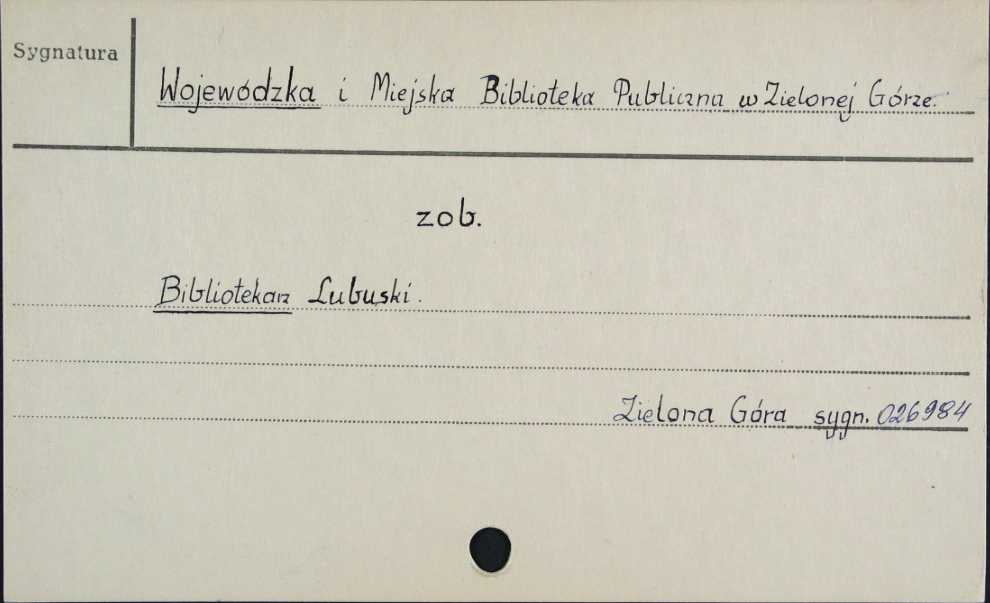 Sygnatura
Wojewódzka i Miejska Biblioteka Publiczna w Zielonej Górze.
zob.
Bibliotekarz Lubuski.
Zielona Góra sygn. 026984